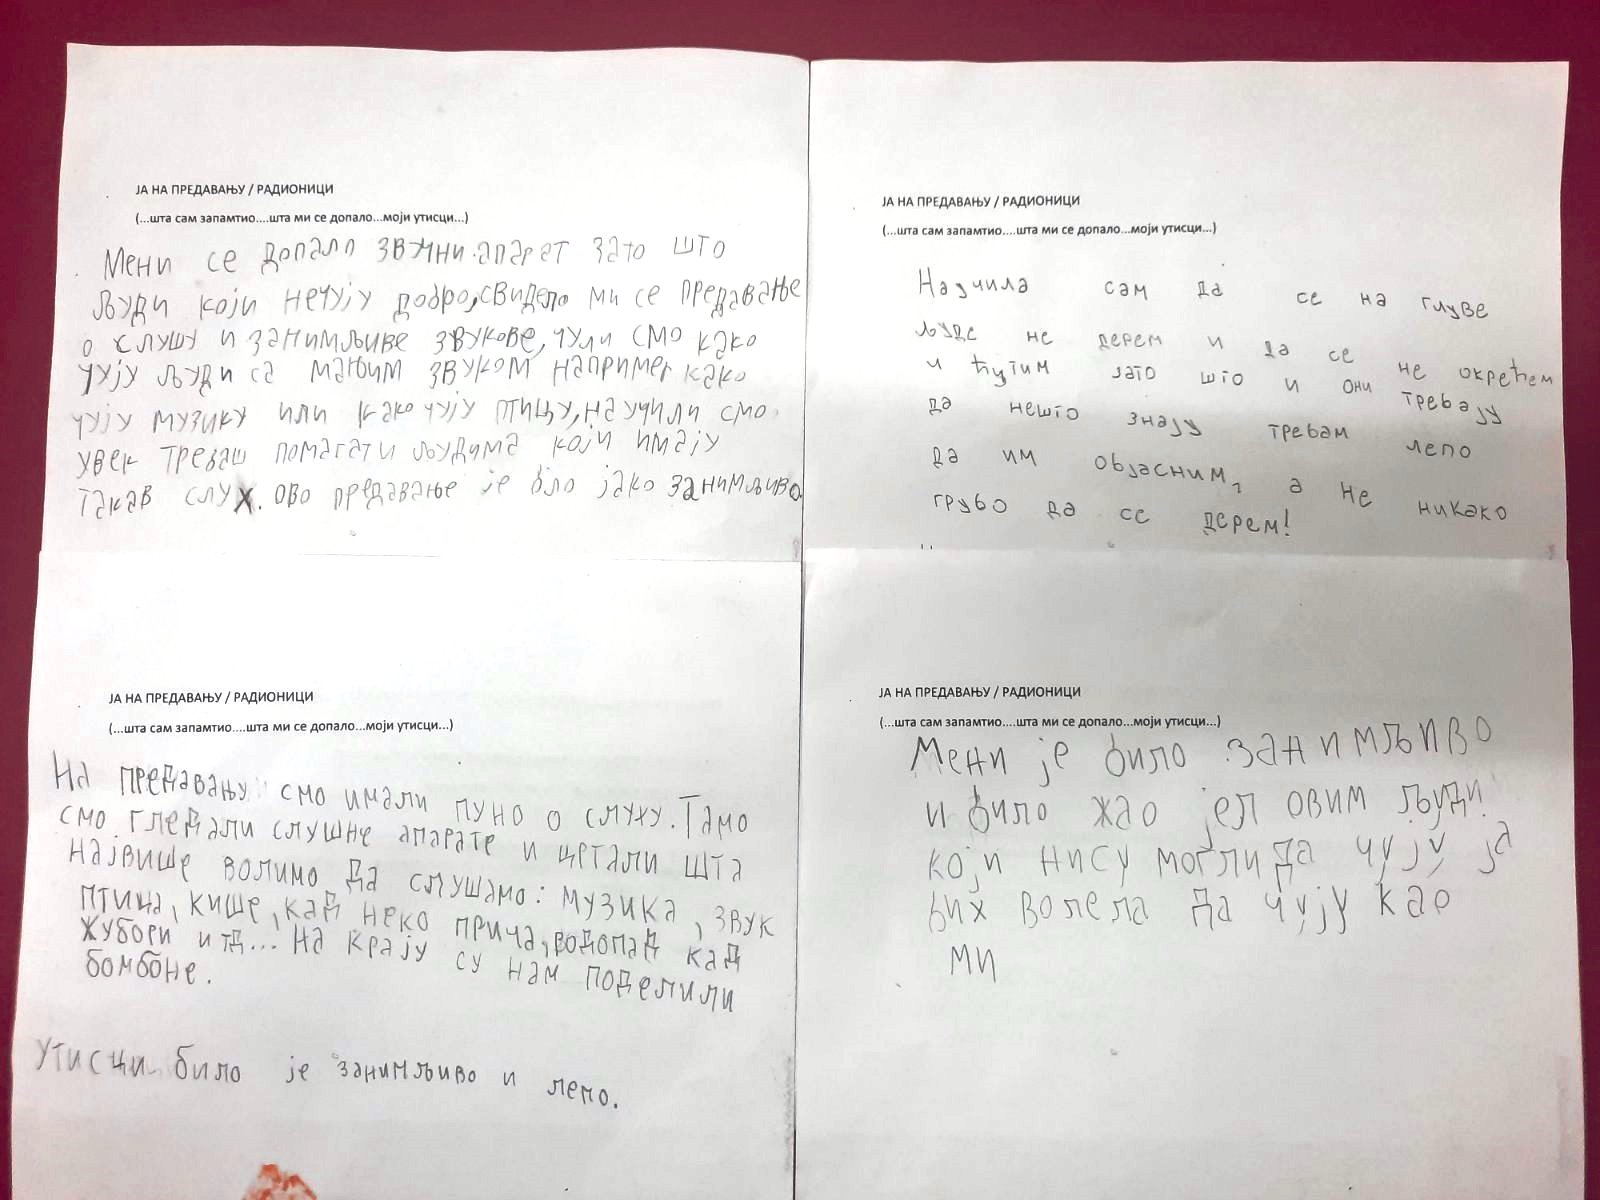 ЈА НА ПРЕДАВАЊУ / РАДИОНИЦИ
(...шта сам запамтио....шта ми се допало...моји утисци...)
Мени се допало звучни апарат зато што
људи који нечују добро, свидело ми се предавање
о слушу и занимљиве звукове, чули смо како
чују људи са мањим звуком например како
чују музику или како чују птицу, научили смо
увек требаш помагати људима који имају
такав слух. ово предавање је било јако занимљиво.
ЈА НА ПРЕДАВАЊУ / РАДИОНИЦИ
(...шта сам запамтио....шта ми се допало...моји утисци...)
Научила сам да се на глуве
људе не дерем и да се не окрећем
и ћутим зато што и они требају
да нешто знају требам лепо
да им објасним, а не никако
грубо да се дерем!
ЈА НА ПРЕДАВАЊУ / РАДИОНИЦИ
(...шта сам запамтио....шта ми се допало...моји утисци...)
На предавању смо имали пуно о слуху. Тамо
смо гледали слушне апарате и цртали шта
највише волимо да слушамо: музика, звук
птица, кише, кад неко прича, водопад кад
жубори итд... На крају су нам поделили
бомбоне.
Утисци било је занимљиво и лепо.
ЈА НА ПРЕДАВАЊУ / РАДИОНИЦИ
(...шта сам запамтио....шта ми се допало...моји утисци...)
Мени је било занимљиво
и било жао јел овим људи
који нису могли да чују ја
бих волела да чују као
ми